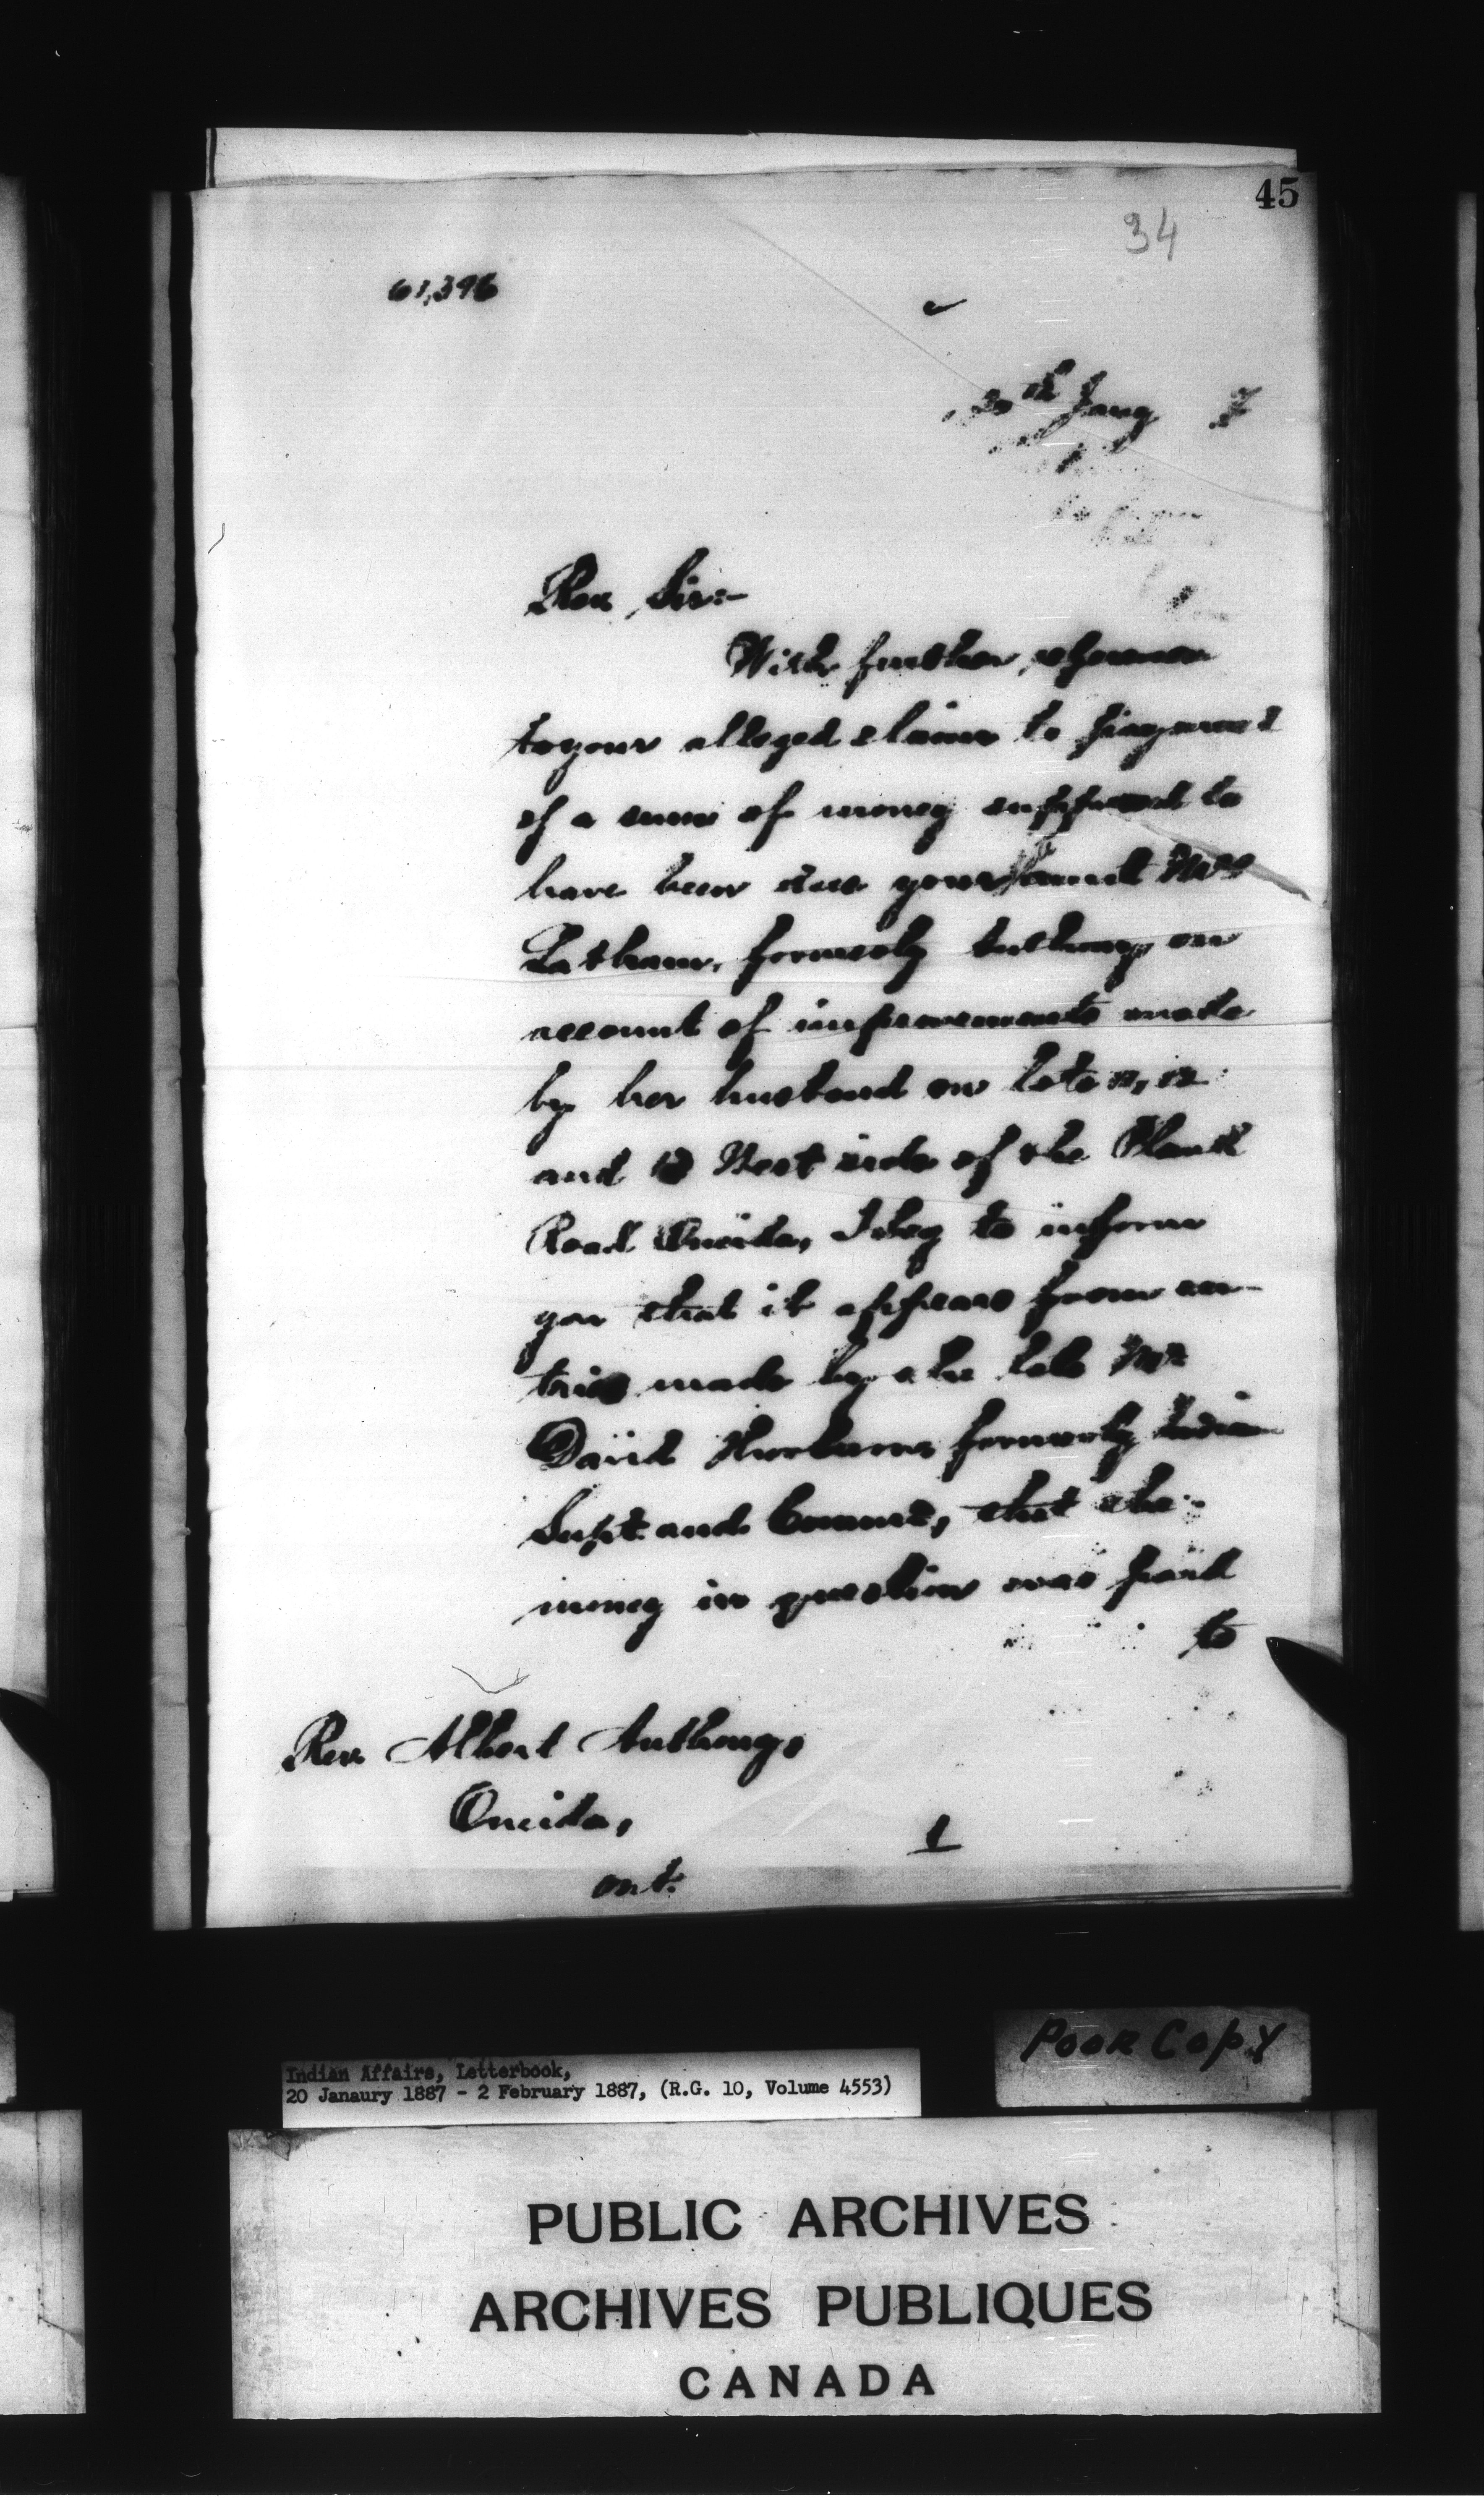 45
34
61,396
20th Jany 7
Rev Sir:-
With further reference
to your alleged claim to payment
of a sum of money supposed to
have been due your aunt Mrs
Latham, formerly Anthony on
account of improvements made
by her husband on lots 11, 12
and 13 West side of the Plank
Road Oneida, I beg to inform
you that it appears from en-
tries made by the late Mr
David Thorburn formerly Indian
Supt and Commr, that the
money in question was paid
to
Rev Albert Anthony,
Oneida,
Ont.
1
Poor Copy
Indian Affairs, Letterbook,
20 Janaury 1887 - 2 February 1887, (R.G. 10, Volume 4553)
PUBLIC ARCHIVES
ARCHIVES PUBLIQUES
CANADA